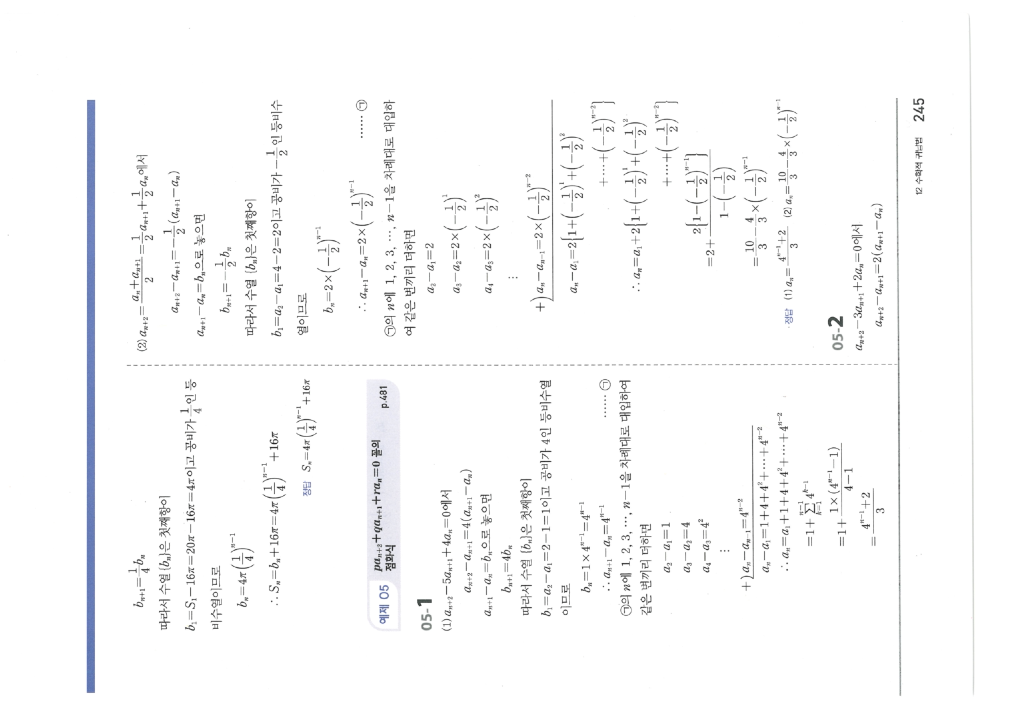 b_{n+1}=\frac{1}{4}b_n
따라서 수열 {b_n}은 첫째항이
b_1=S_1-16π=20π-16π=4π이고 공비가 \frac{1}{4}인 등
비수열이므로
b_n=4π(\frac{1}{4})^{n-1}
∴ S_n=b_n+16π=4π(\frac{1}{4})^{n-1}+16π
정답 S_n=4π(\frac{1}{4})^{n-1}+16π
예제 05 pa_{n+2}+qa_{n+1}+ra_n=0 꼴의
점화식 p.481
05-1
(1) a_{n+2}-5a_{n+1}+4a_n=0에서
a_{n+2}-a_{n+1}=4(a_{n+1}-a_n)
a_{n+1}-a_n=b_n으로 놓으면
b_{n+1}=4b_n
따라서 수열 {b_n}은 첫째항이
b_1=a_2-a_1=2-1=1이고 공비가 4인 등비수열
이므로
b_n=1×4^{n-1}=4^{n-1}
∴ a_{n+1}-a_n=4^{n-1} …… ㉠
㉠의 n에 1, 2, 3, …, n-1을 차례대로 대입하여
같은 변끼리 더하면
a_2-a_1=1
a_3-a_2=4
a_4-a_3=4^2
⋮
+) a_n-a_{n-1}=4^{n-2}
a_n-a_1=1+4+4^2+…+4^{n-2}
∴ a_n=a_1+1+4+4^2+…+4^{n-2}
=1+\sum_{k=1}^{n-1}4^{k-1}
=1+\frac{1×(4^{n-1}-1)}{4-1}
=\frac{4^{n-1}+2}{3}
(2) a_{n+2}=\frac{a_n+a_{n+1}}{2}=\frac{1}{2}a_{n+1}+\frac{1}{2}a_n에서
a_{n+2}-a_{n+1}=-\frac{1}{2}(a_{n+1}-a_n)
a_{n+1}-a_n=b_n으로 놓으면
b_{n+1}=-\frac{1}{2}b_n
따라서 수열 {b_n}은 첫째항이
b_1=a_2-a_1=4-2=2이고 공비가 -\frac{1}{2}인 등비수
열이므로
b_n=2×(-\frac{1}{2})^{n-1}
∴ a_{n+1}-a_n=2×(-\frac{1}{2})^{n-1} …… ㉠
㉠의 n에 1, 2, 3, …, n-1을 차례대로 대입하
여 같은 변끼리 더하면
a_2-a_1=2
a_3-a_2=2×(-\frac{1}{2})^1
a_4-a_3=2×(-\frac{1}{2})^2
⋮
+) a_n-a_{n-1}=2×(-\frac{1}{2})^{n-2}
a_n-a_1=2{1+(-\frac{1}{2})^1+(-\frac{1}{2})^2
+…+(-\frac{1}{2})^{n-2}}
∴ a_n=a_1+2{1+(-\frac{1}{2})^1+(-\frac{1}{2})^2
+…+(-\frac{1}{2})^{n-2}}
=2+\frac{2{1-(-\frac{1}{2})^{n-1}}}{1-(-\frac{1}{2})}
=\frac{10}{3}-\frac{4}{3}×(-\frac{1}{2})^{n-1}
정답 (1) a_n=\frac{4^{n-1}+2}{3} (2) a_n=\frac{10}{3}-\frac{4}{3}×(-\frac{1}{2})^{n-1}
05-2
a_{n+2}-3a_{n+1}+2a_n=0에서
a_{n+2}-a_{n+1}=2(a_{n+1}-a_n)
12 수학적 귀납법 245